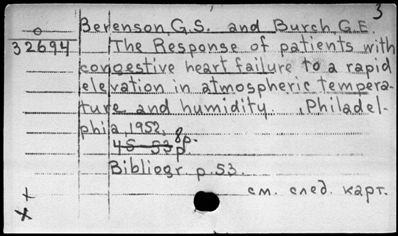 3
Berenson, G.S. and Burch, G.E.
32694 The Response of patients with
congestive heart failure to a rapid
elevation in atmospheric tempera-
ture and humidity. Philadel-
phia, 1952.
8p.
45-53 p
Bibliogr. p.53.
см. след. карт.